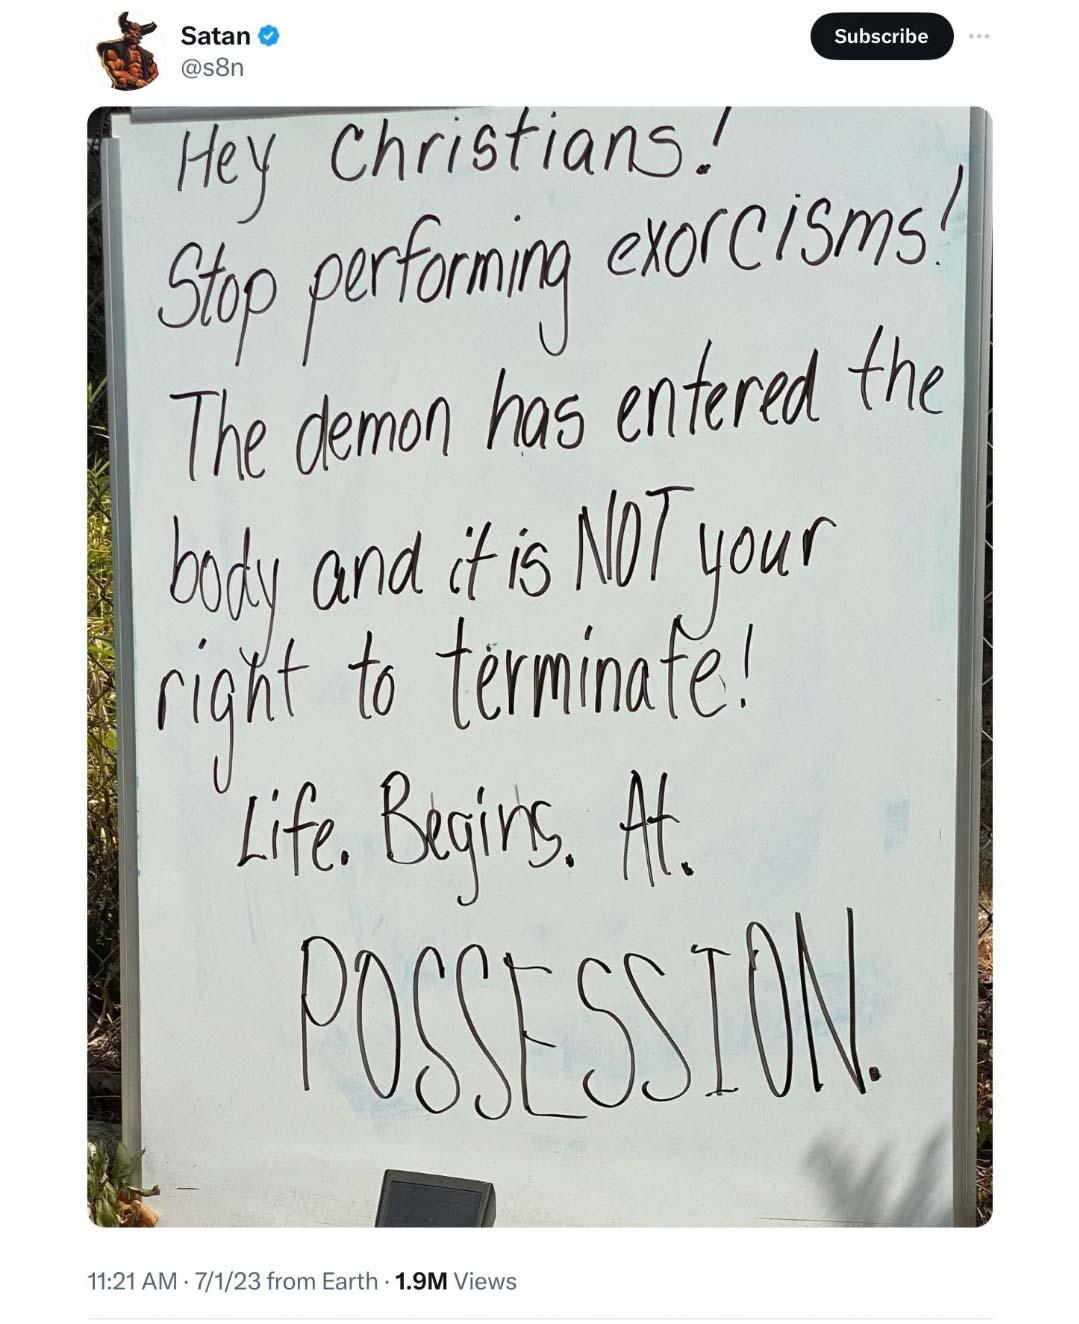 Satan
@s8n
Subscribe
Hey Christians!
Stop performing exorcisms!
The demon has entered the
body and it is NOT your
right to terminate!
Life. Begins. At.
POSSESSION.
11:21 AM · 7/1/23 from Earth · 1.9M Views